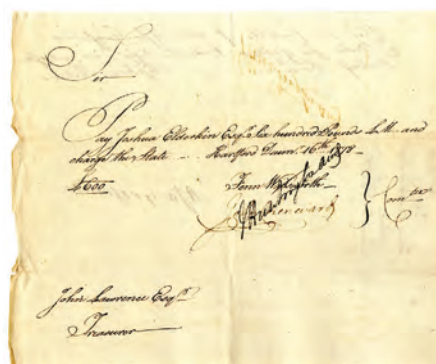 Sir
Pay Joshua Elderkin Esqr. Six hundred Pounds L.M. and
charge the State — Hartford Decem. 16th 1778 —
£600 Fenn Wadsworth
Com tee
John Lawrence Esqr.
Treasurer